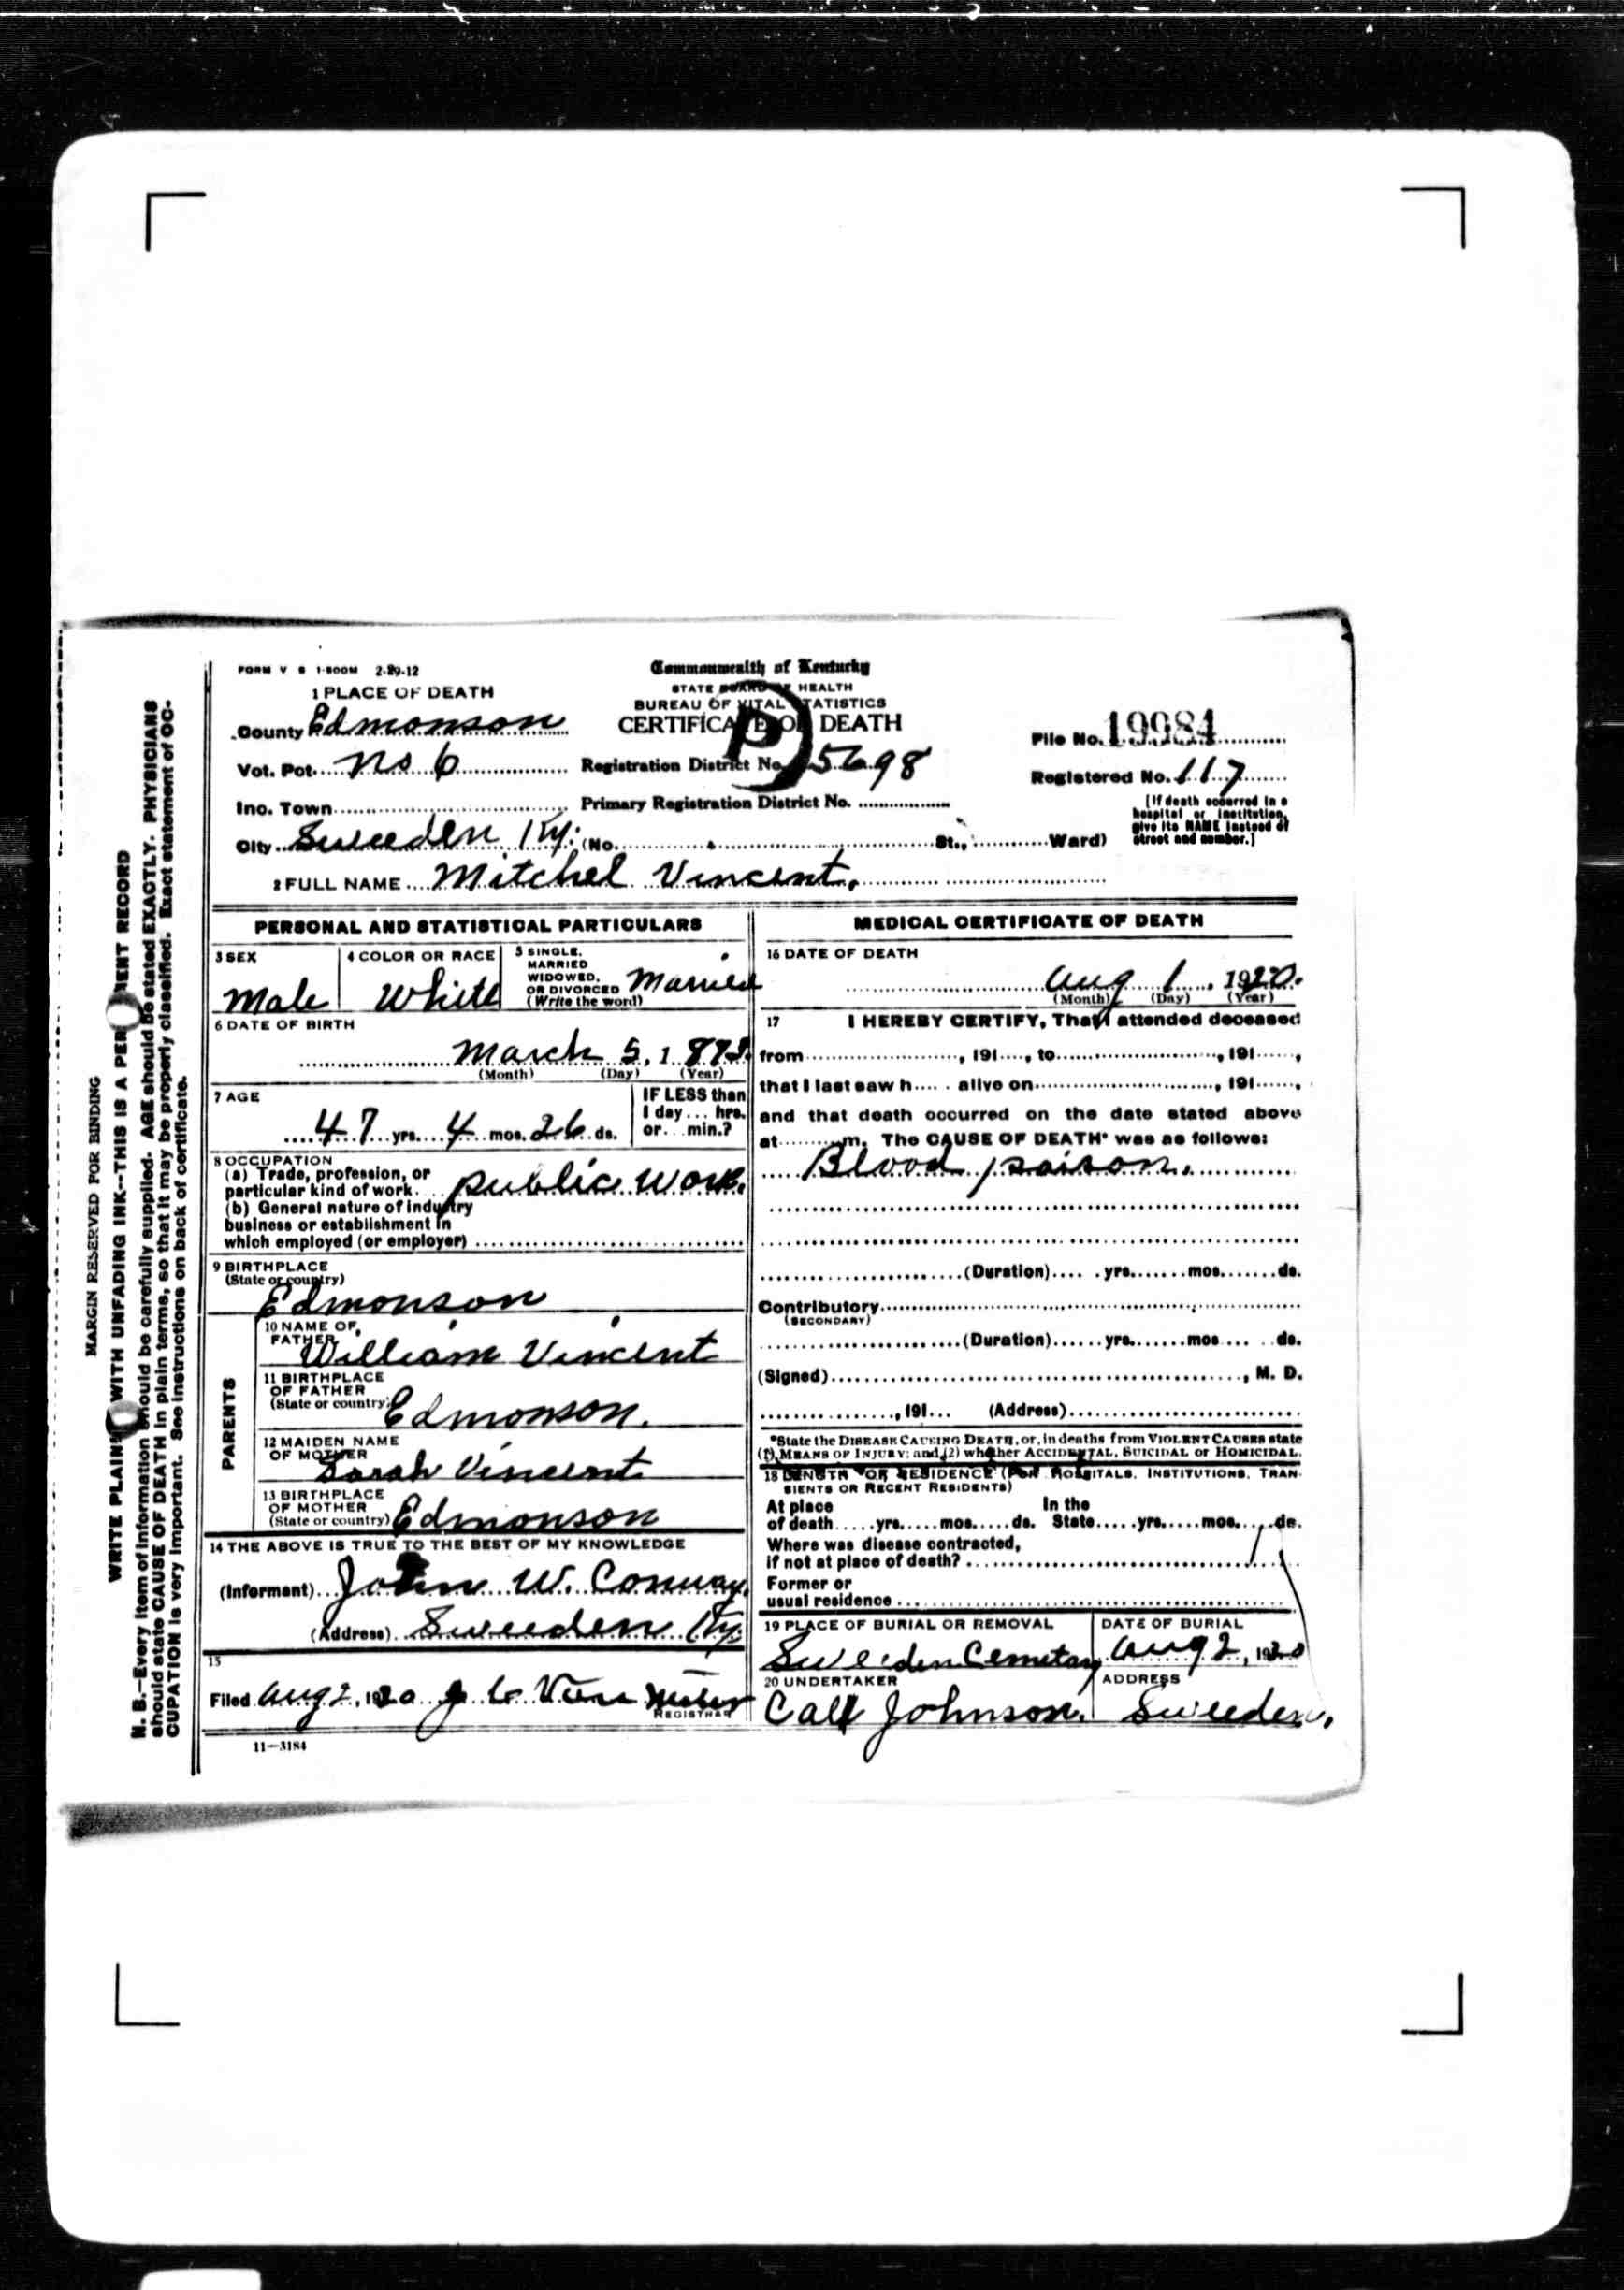 FORM V S 1-500M 2-29-12
Commonwealth of Kentucky
STATE BOARD OF HEALTH
BUREAU OF VITAL STATISTICS
CERTIFICATE OF DEATH
1 PLACE OF DEATH
County Edmonson
Vot. Pct. No 6
Registration District No. 5698
Inc. Town
Primary Registration District No.
City Sweeden Ky. (No. St., Ward)
File No. 19984
Registered No. 117
[If death occurred in a hospital or institution, give its NAME instead of street and number.]
2 FULL NAME Mitchel Vincent.
PERSONAL AND STATISTICAL PARTICULARS
3 SEX
Male
4 COLOR OR RACE
White
5 SINGLE,
MARRIED
WIDOWED,
OR DIVORCED
(Write the word)
Married
6 DATE OF BIRTH
March 5, 1873.
(Month) (Day) (Year)
7 AGE
47 yrs. 4 mos. 26 ds.
IF LESS than
1 day ... hrs.
or ... min.?
8 OCCUPATION
(a) Trade, profession, or
particular kind of work public work.
(b) General nature of industry
business or establishment in
which employed (or employer)
9 BIRTHPLACE
(State or country)
Edmonson
PARENTS
10 NAME OF
FATHER
William Vincent
11 BIRTHPLACE
OF FATHER
(State or country)
Edmonson.
12 MAIDEN NAME
OF MOTHER
Sarah Vincent
13 BIRTHPLACE
OF MOTHER
(State or country) Edmonson
14 THE ABOVE IS TRUE TO THE BEST OF MY KNOWLEDGE
(Informant) John W. Conway.
(Address) Sweeden Ky.
15
Filed Aug 2, 1920 J C Van
REGISTRAR
11—3184
MEDICAL CERTIFICATE OF DEATH
16 DATE OF DEATH
Aug 1, 1920.
(Month) (Day) (Year)
17 I HEREBY CERTIFY, That I attended deceased
from , 191 , to , 191 ,
that I last saw h alive on , 191 ,
and that death occurred on the date stated above
at m. The CAUSE OF DEATH* was as follows:
Blood poison.
(Duration) yrs. mos. ds.
Contributory
(SECONDARY)
(Duration) yrs. mos. ds.
(Signed) , M. D.
, 191 (Address)
*State the DISEASE CAUSING DEATH, or, in deaths from VIOLENT CAUSES state
(1) MEANS OF INJURY; and (2) whether ACCIDENTAL, SUICIDAL or HOMICIDAL.
18 LENGTH OF RESIDENCE (FOR HOSPITALS, INSTITUTIONS, TRAN-
SIENTS OR RECENT RESIDENTS)
At place In the
of death yrs. mos. ds. State yrs. mos. ds.
Where was disease contracted,
if not at place of death?
Former or
usual residence
19 PLACE OF BURIAL OR REMOVAL
Sweeden Cemetary
DATE OF BURIAL
Aug 2, 1920
20 UNDERTAKER
Call Johnson.
ADDRESS
Sweeden.
MARGIN RESERVED FOR BINDING
WRITE PLAINLY WITH UNFADING INK--THIS IS A PERMANENT RECORD
N. B.—Every item of information should be carefully supplied. AGE should be stated EXACTLY. PHYSICIANS
should state CAUSE OF DEATH in plain terms, so that it may be properly classified. Exact statement of OC-
CUPATION is very important. See instructions on back of certificate.